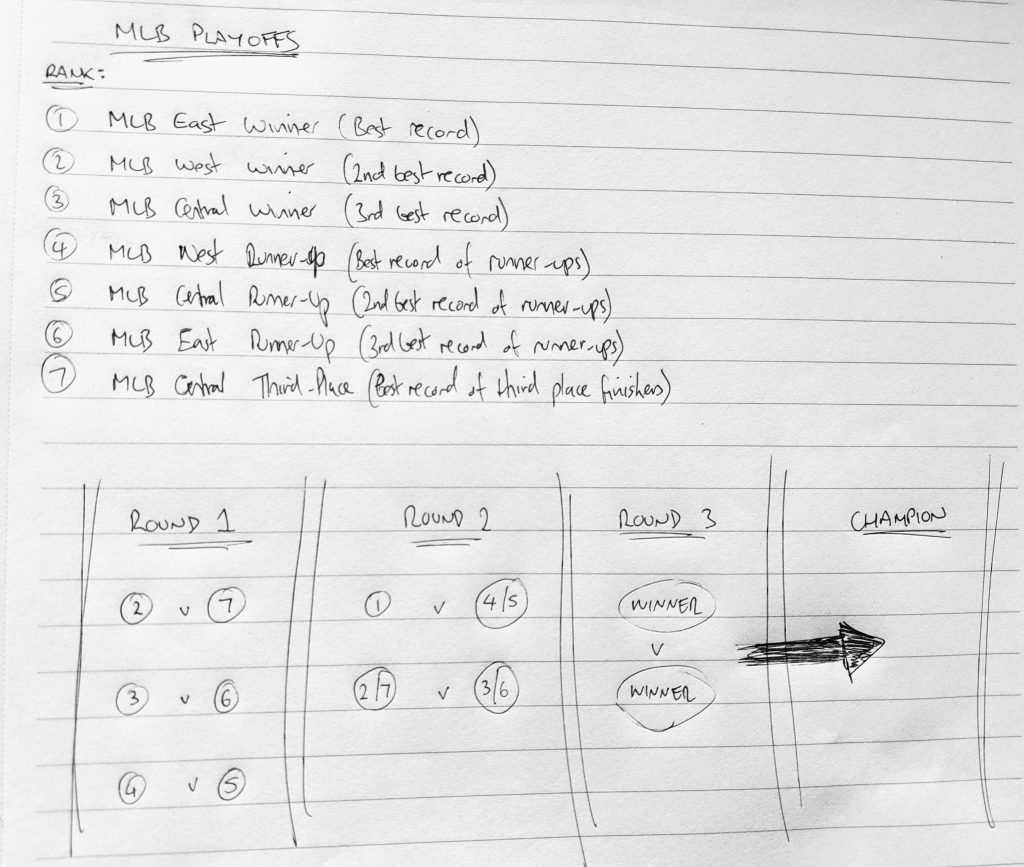 MLB PLAYOFFS
RANK:
1 MLB East Winner (Best record)
2 MLB West Winner (2nd best record)
3 MLB Central Winner (3rd best record)
4 MLB West Runner-Up (Best record of runner-ups)
5 MLB Central Runner-Up (2nd best record of runner-ups)
6 MLB East Runner-Up (3rd best record of runner-ups)
7 MLB Central Third-Place (Best record of third place finishers)
ROUND 1 ROUND 2 ROUND 3 CHAMPION
2 v 7 1 v 4/5 WINNER
v
3 v 6 2/7 v 3/6 WINNER
4 v 5